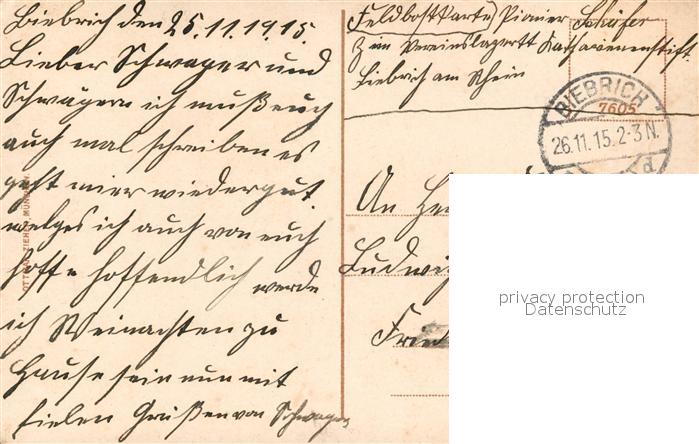 Biebrich den 25.11.1915.
Lieber Schwager und
Schwägern ich muß euch
auch mal schreiben es
geht mier wieder gut.
welges ich auch von euch
hoffe hoffendlich werde
ich Weinachten zu
Hause sein nun mit
fielen Grüßen von Schwager
Feldpostkarte, Pionier Schäfer
Z im Vereinslazarett Katharienenstift.
Biebrich am Rhein
BIEBRICH
7605
26.11.15.2-3N.
An
Ludwig
Fried
OTTMAR ZIEHER, MÜNCHEN
privacy protection
Datenschutz